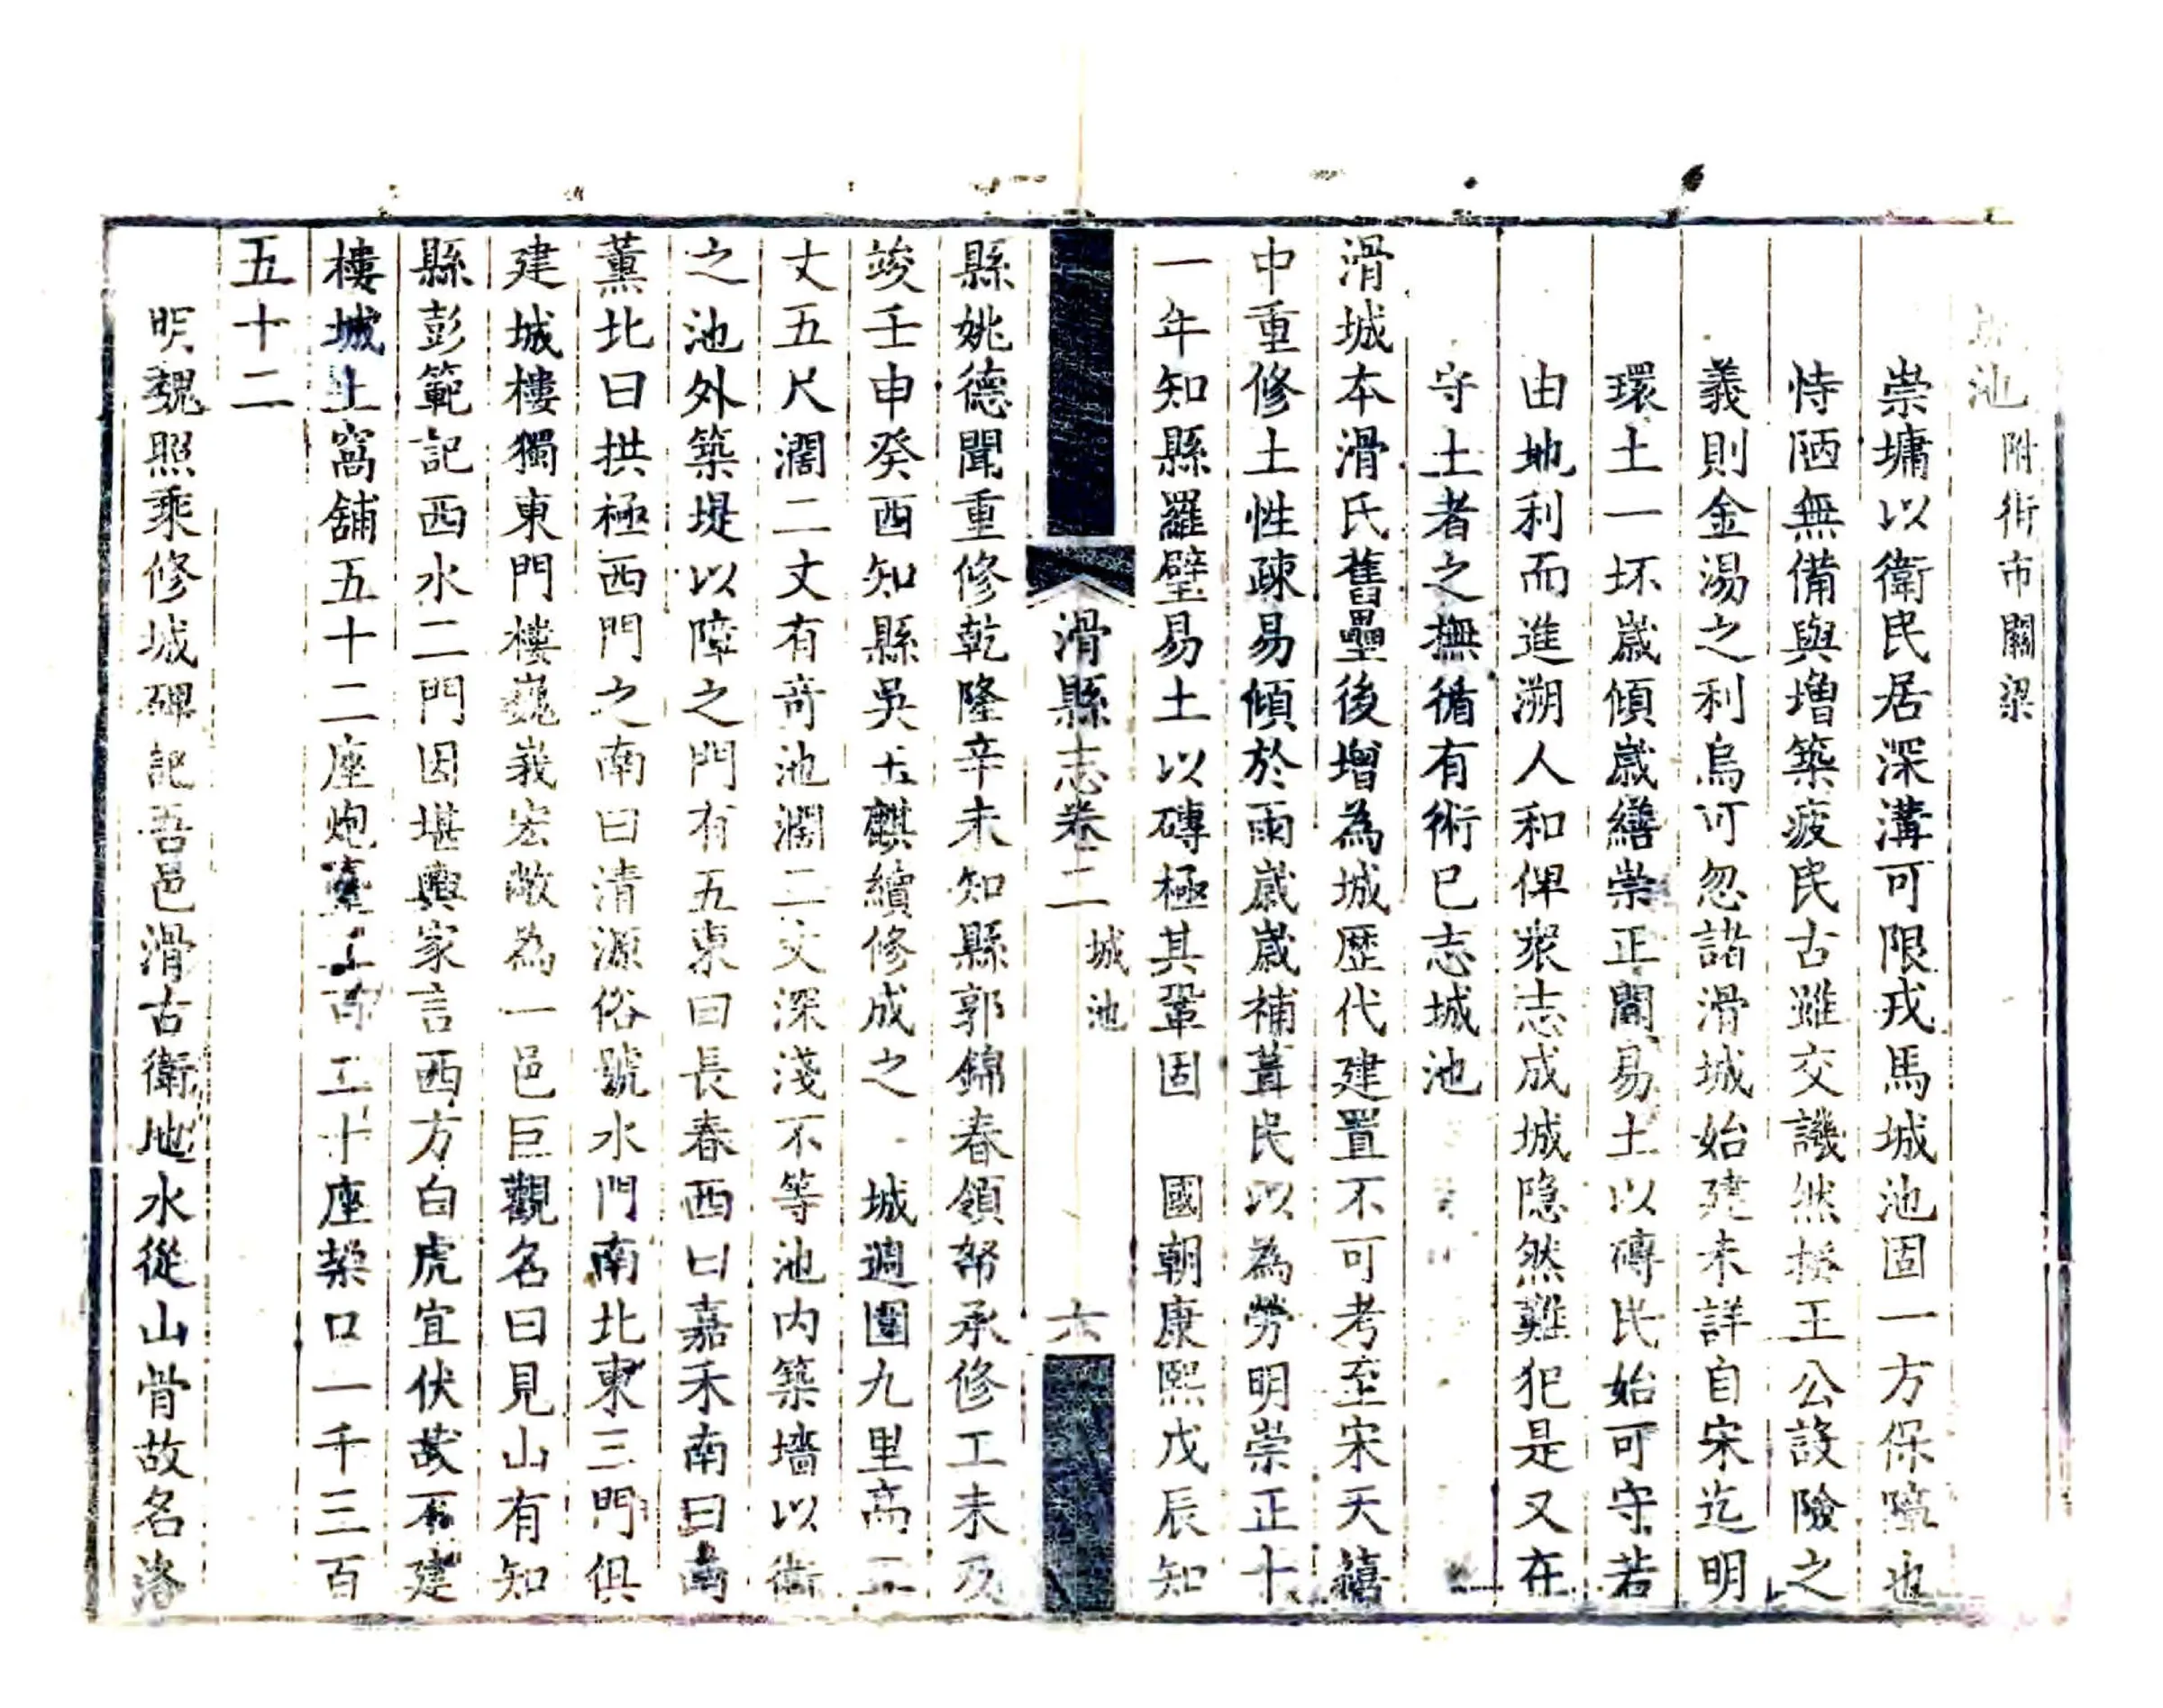 城池 附街市關梁
崇墉以衛民居深溝可限戎馬城池固一方保障也
恃陋無備與增築疲民古雖交譏然揆王公設險之
義則金湯之利烏可忽諸滑城始建未詳自宋迄明
環土一坏歲傾歲繕崇正間易土以磚民始可守若
由地利而進溯人和俾衆志成城隐然難犯是又在
守土者之撫循有術已志城池
滑城本滑氏舊壘後增為城歴代建置不可考至宋天禧
中重修土性疎易傾於雨歲歲補葺民以為勞明崇正十
一年知縣羅璧易土以磚極其鞏固 國朝康熙戊辰知
滑縣志卷二 城池 六
縣姚德聞重修乾隆辛未知縣郭錦春領帑承修工未及
竣壬申癸酉知縣吳士麒續修成之 城週圍九里高三
丈五尺濶二丈有奇池濶二丈深淺不等池内築墻以衛
之池外築堤以障之門有五東曰長春西曰嘉禾南曰南
薰北曰拱極西門之南曰清源俗號水門南北東三門俱
建城樓獨東門樓巍峩宏敞為一邑巨觀名曰見山有知
縣彭範記西水二門因堪輿家言西方白虎宜伏故不建
樓城上窩舖五十二座炮臺 工十座垜口一千三百
五十二
明魏照乘修城碑記吾邑滑古衛地水從山骨故名洛